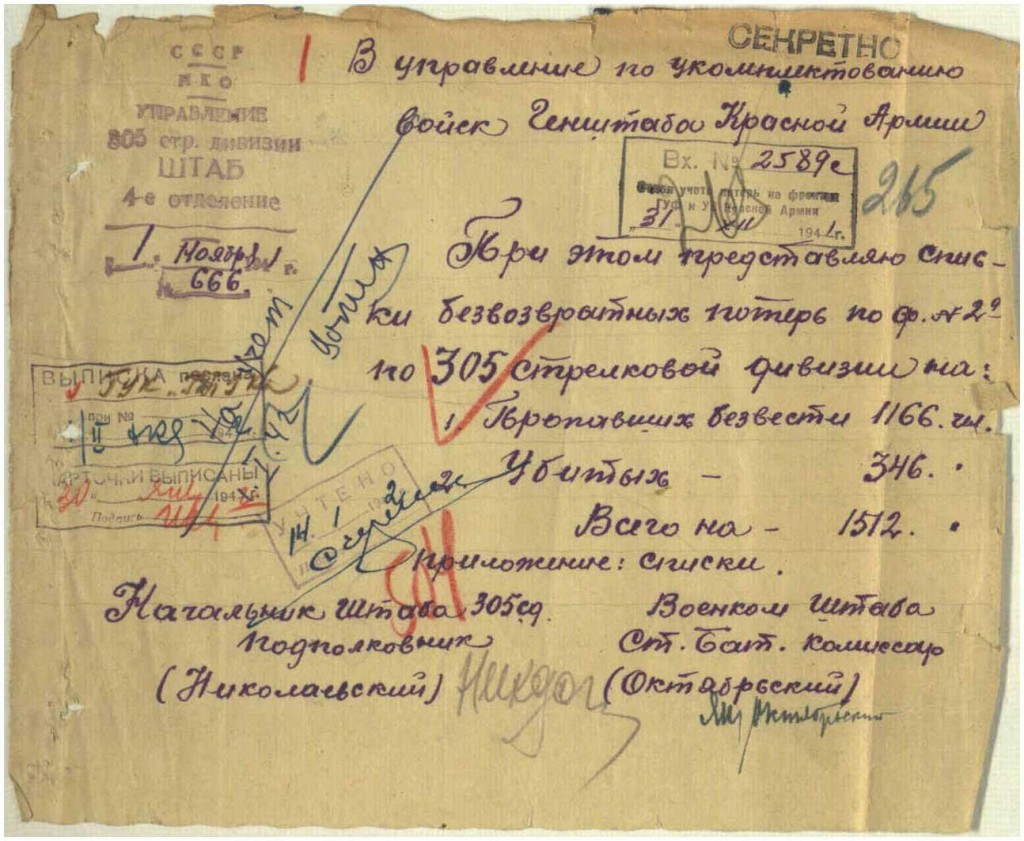 СЕКРЕТНО
СССР
НКО
УПРАВЛЕНИЕ
305 стр. дивизии
ШТАБ
4-е отделение
1 Ноября 1 г.
666.
1 В управление по укомплектованию
войск Генштаба Красной Армии
Вх. № 2589с
учета потерь на фронтах
ГУФ и У Красной Армии
„31. XII 1941 г.
265
При этом представляю спис-
ки безвозвратных потерь по ф. № 2а
по 305 стрелковой дивизии на:
1. Пропавших безвести 1166. чл.
Убитых — 346. "
Всего на — 1512. "
Приложение: списки.
ВЫПИСКА послана
при №
194
КАРТОЧКИ ВЫПИСАНЫ
30 " янв 194 2 г.
Подпись
УЧТЕНО
14. 1 2
Начальник Штаба 305сд.
подполковник
(Николаевский)
Военком Штаба
Ст. Бат. комиссар
(Октябрьский)
Октябрьский